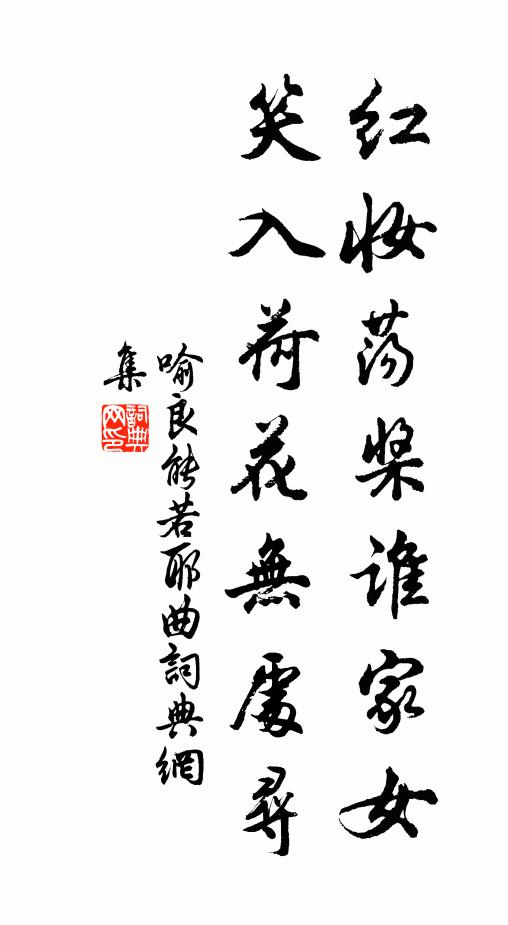 红妆荡桨谁家女
笑入荷花無處尋
喻良能若耶曲詞典網
集
詞典
网印